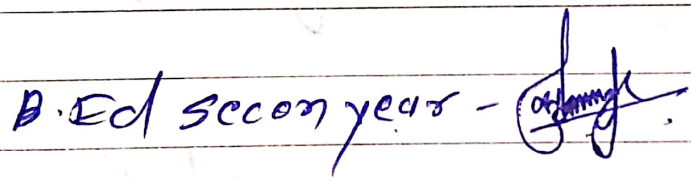 B.Ed secon year -